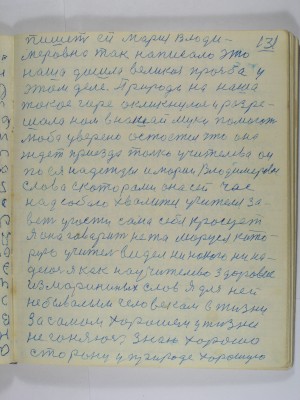 131
пишет ей Мария Влади-
меровна так написало это
наша дошла великоя прозба у
этом деле Природа на наша
такое горе окликнулося и разре-
шала нам внашей муки помогать
Люба уверено остается что она
ждет приезда только учителева он
по ея надежды и Марии Владимеровны
слова с которами она сей час
над собою хвалит учителя за-
вет у гости сама себя красует
Я она говарит не та Маруся кито-
рую учитель видел ни някого ни ка-
делог Я как на учителево здоровье
из Мариживых слов Я для ней
небывалым человекам в жизни
За самым хорошем у жизни
не ганяюсь, знаю хорошо
сторону у природе хорошую